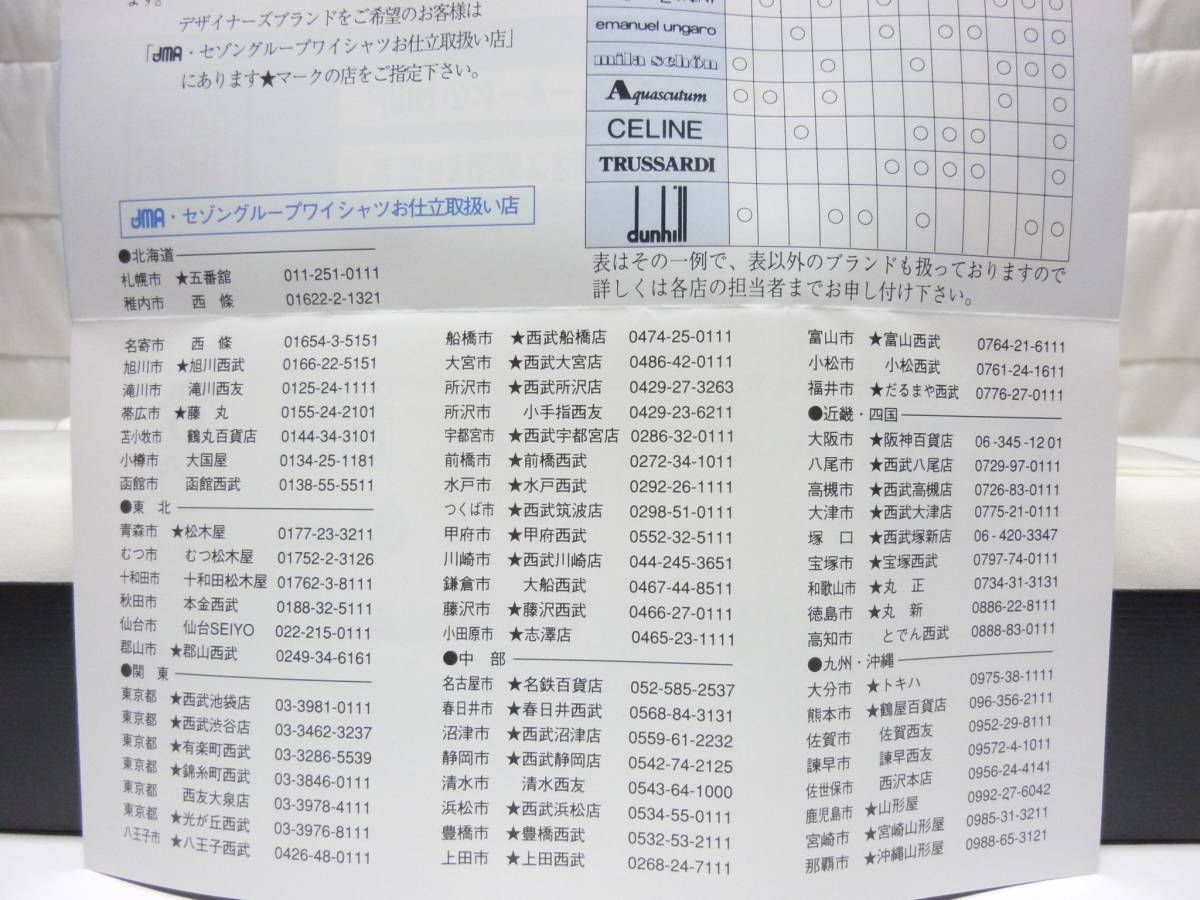 ます。
デザイナーズブランドをご希望のお客様は
「dMA・セゾングループワイシャツお仕立取扱い店」
にあります★マークの店をご指定下さい。
emanuel ungaro
mila schön
Aquascutum
CELINE
TRUSSARDI
dunhill
表はその一例で、表以外のブランドも扱っておりますので
詳しくは各店の担当者までお申し付け下さい。
dMA・セゾングループワイシャツお仕立取扱い店
●北海道
札幌市 ★五番舘 011-251-0111
稚内市 西 條 01622-2-1321
名寄市 西 條 01654-3-5151
旭川市 ★旭川西武 0166-22-5151
滝川市 滝川西友 0125-24-1111
帯広市 ★藤 丸 0155-24-2101
苫小牧市 鶴丸百貨店 0144-34-3101
小樽市 大国屋 0134-25-1181
函館市 函館西武 0138-55-5511
●東 北
青森市 ★松木屋 0177-23-3211
むつ市 むつ松木屋 01752-2-3126
十和田市 十和田松木屋 01762-3-8111
秋田市 本金西武 0188-32-5111
仙台市 仙台SEIYO 022-215-0111
郡山市 ★郡山西武 0249-34-6161
●関 東
東京都 ★西武池袋店 03-3981-0111
東京都 ★西武渋谷店 03-3462-3237
東京都 ★有楽町西武 03-3286-5539
東京都 ★錦糸町西武 03-3846-0111
東京都 西友大泉店 03-3978-4111
東京都 ★光が丘西武 03-3976-8111
八王子市 ★八王子西武 0426-48-0111
船橋市 ★西武船橋店 0474-25-0111
大宮市 ★西武大宮店 0486-42-0111
所沢市 ★西武所沢店 0429-27-3263
所沢市 小手指西友 0429-23-6211
宇都宮市 ★西武宇都宮店 0286-32-0111
前橋市 ★前橋西武 0272-34-1011
水戸市 ★水戸西武 0292-26-1111
つくば市 ★西武筑波店 0298-51-0111
甲府市 ★甲府西武 0552-32-5111
川崎市 ★西武川崎店 044-245-3651
鎌倉市 大船西武 0467-44-8511
藤沢市 ★藤沢西武 0466-27-0111
小田原市 ★志澤店 0465-23-1111
●中 部
名古屋市 ★名鉄百貨店 052-585-2537
春日井市 ★春日井西武 0568-84-3131
沼津市 ★西武沼津店 0559-61-2232
静岡市 ★西武静岡店 0542-74-2125
清水市 清水西友 0543-64-1000
浜松市 ★西武浜松店 0534-55-0111
豊橋市 ★豊橋西武 0532-53-2111
上田市 ★上田西武 0268-24-7111
富山市 ★富山西武 0764-21-6111
小松市 小松西武 0761-24-1611
福井市 ★だるまや西武 0776-27-0111
●近畿・四国
大阪市 ★阪神百貨店 06-345-1201
八尾市 ★西武八尾店 0729-97-0111
高槻市 ★西武高槻店 0726-83-0111
大津市 ★西武大津店 0775-21-0111
塚 口 ★西武塚新店 06-420-3347
宝塚市 ★宝塚西武 0797-74-0111
和歌山市 ★丸 正 0734-31-3131
徳島市 ★丸 新 0886-22-8111
高知市 とでん西武 0888-83-0111
●九州・沖縄
大分市 ★トキハ 0975-38-1111
熊本市 ★鶴屋百貨店 096-356-2111
佐賀市 佐賀西友 0952-29-8111
諫早市 諫早西友 09572-4-1011
佐世保市 西沢本店 0956-24-4141
鹿児島市 ★山形屋 0992-27-6042
宮崎市 ★宮崎山形屋 0985-31-3211
那覇市 ★沖縄山形屋 0988-65-3121